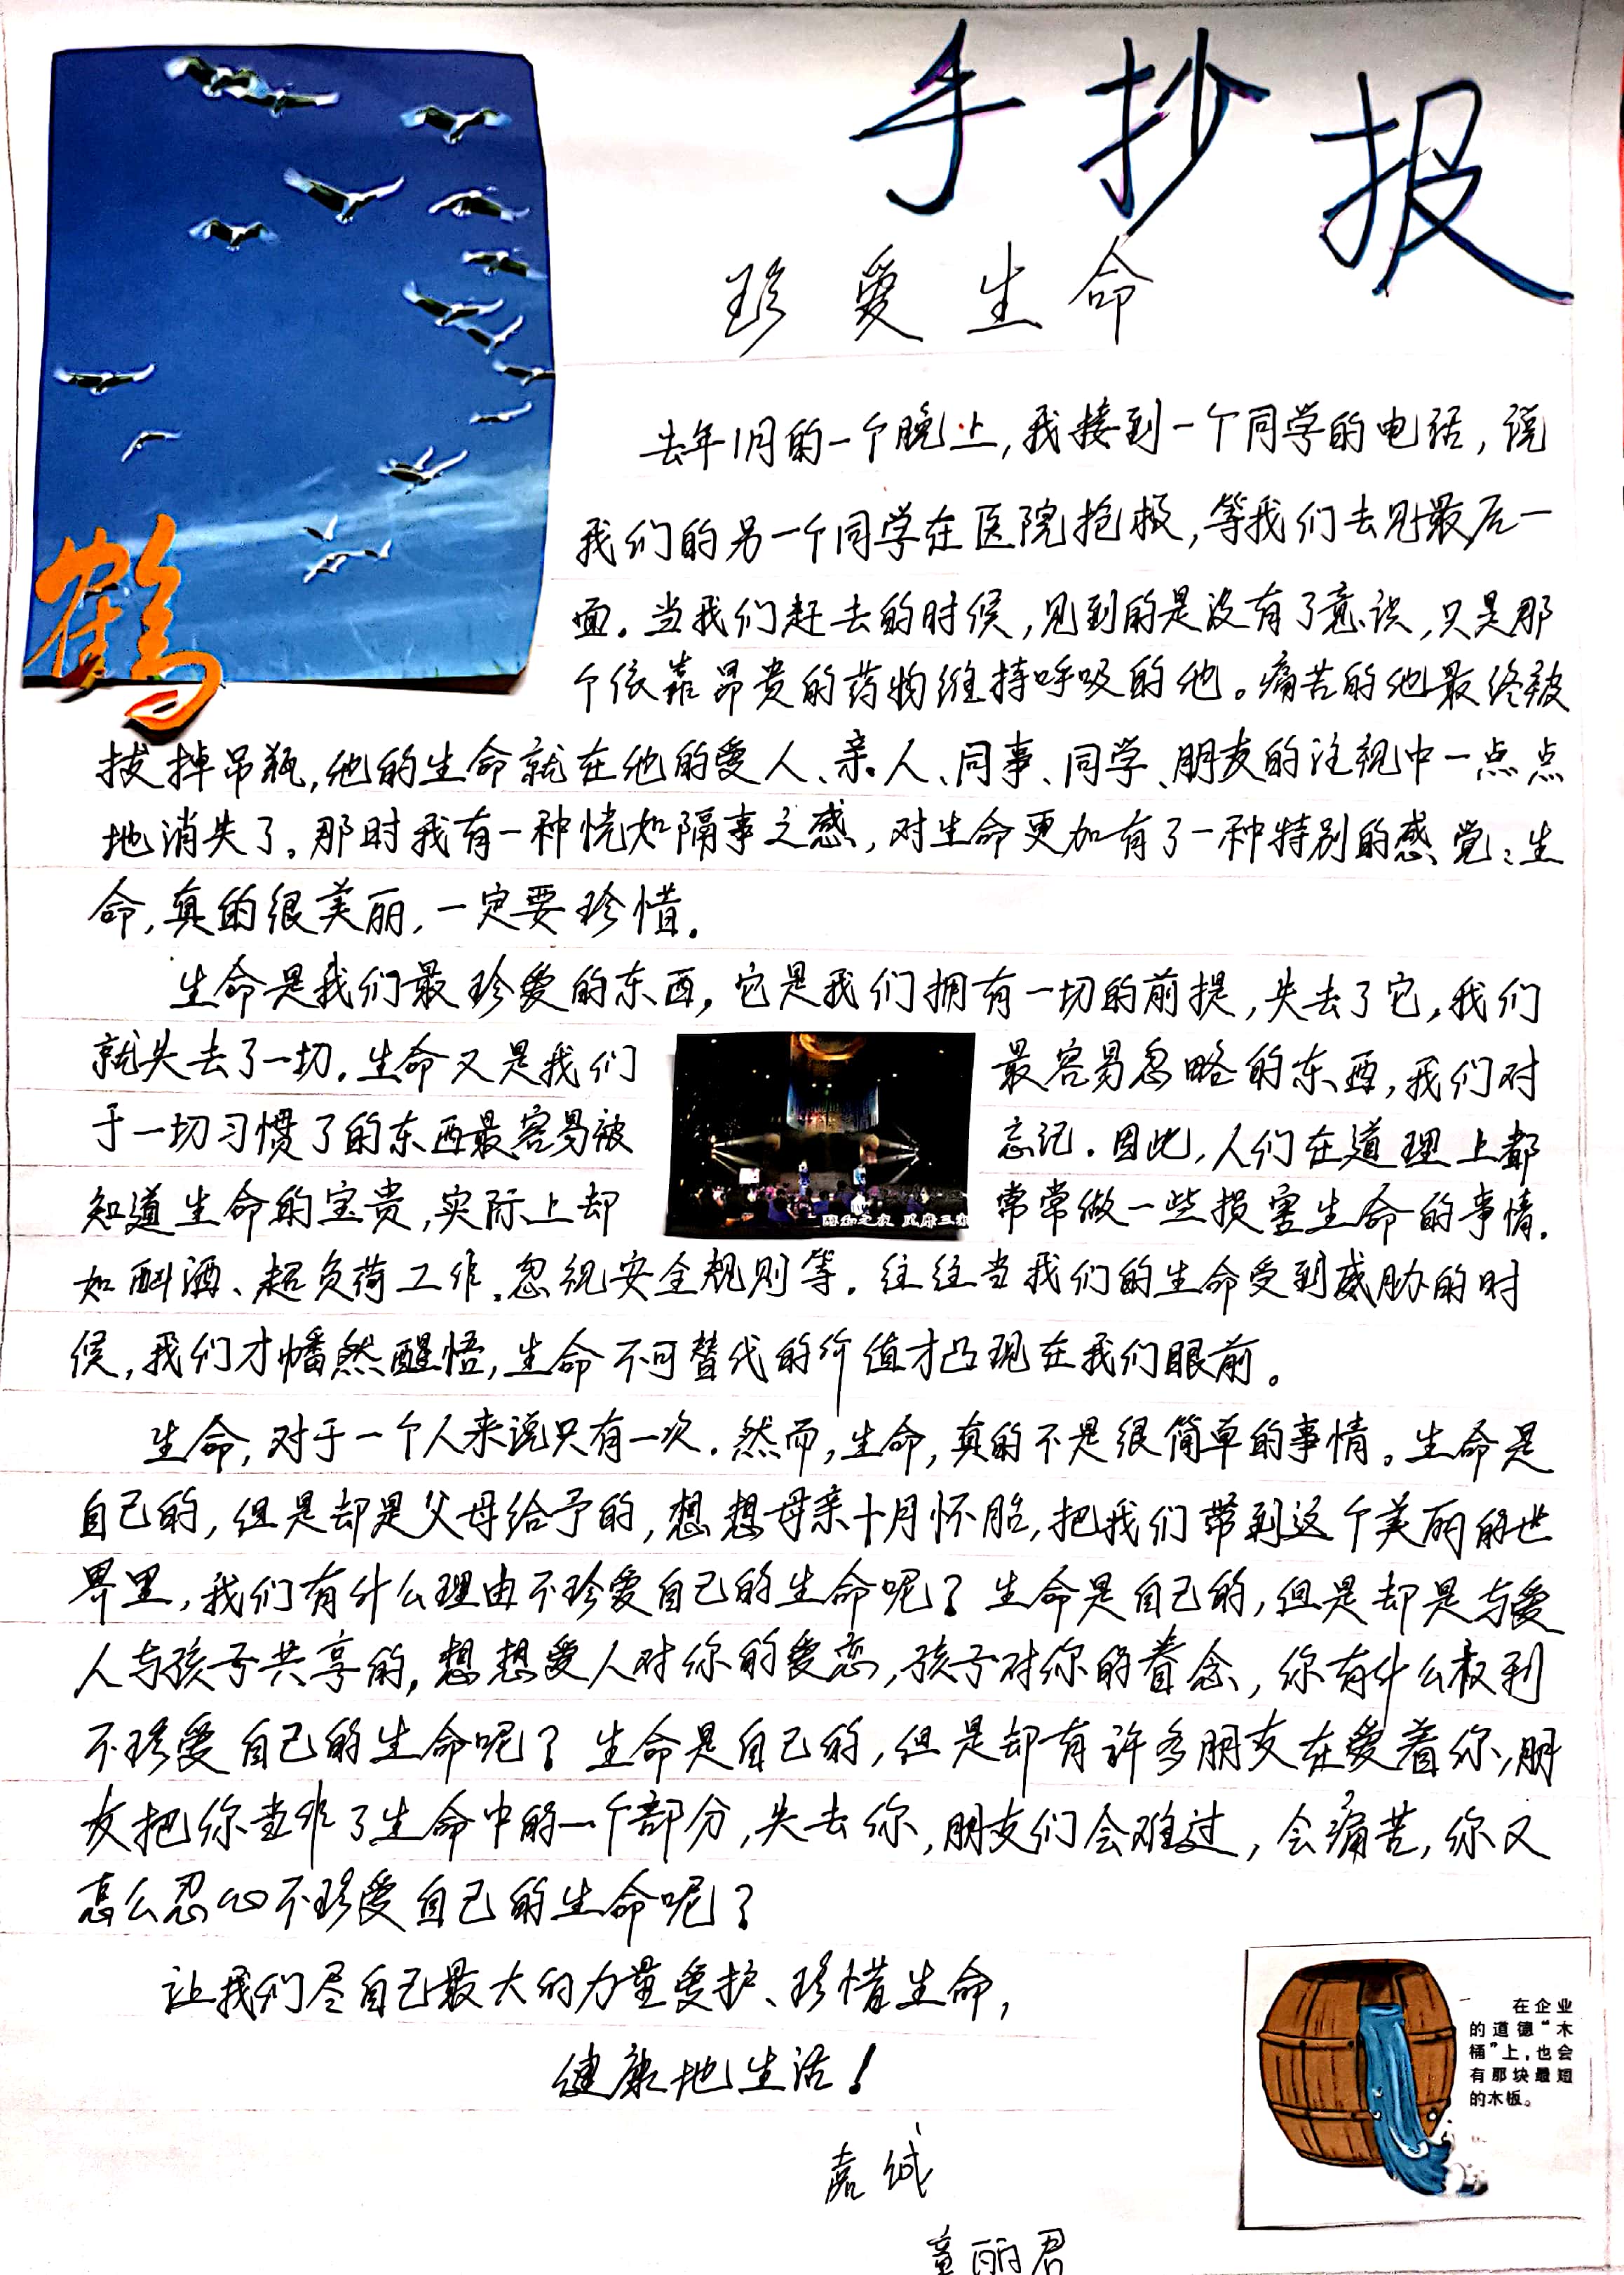 手抄报
珍爱生命
鹤
去年1月的一个晚上,我接到一个同学的电话,说
我们的另一个同学在医院抢救,等我们去见最后一
面。当我们赶去的时候,见到的是没有了意识,只是那
个依靠昂贵的药物维持呼吸的他。痛苦的他最终被
拔掉吊瓶,他的生命就在他的爱人、亲人、同事、同学、朋友的注视中一点点
地消失了。那时我有一种恍如隔事之感,对生命更加有了一种特别的感觉:生
命,真的很美丽,一定要珍惜.
生命是我们最珍爱的东西,它是我们拥有一切的前提,失去了它,我们
就失去了一切.生命又是我们最容易忽略的东西,我们对
于一切习惯了的东西最容易被忘记.因此,人们在道理上都
知道生命的宝贵,实际上却常常做一些损害生命的事情.
如酗酒、超负荷工作.忽视安全规则等.往往当我们的生命受到威胁的时
候,我们才幡然醒悟,生命不可替代的价值才凸现在我们眼前。
生命,对于一个人来说只有一次.然而,生命,真的不是很简单的事情。生命是
自己的,但是却是父母给予的,想想母亲十月怀胎,把我们带到这个美丽的世
界里,我们有什么理由不珍爱自己的生命呢?生命是自己的,但是却是与爱
人与孩子共享的,想想爱人对你的爱恋,孩子对你的眷念,你有什么权利
不珍爱自己的生命呢?生命是自己的,但是却有许多朋友在爱着你,朋
友把你当作了生命中的一个部分,失去你,朋友们会难过,会痛苦,你又
怎么忍心不珍爱自己的生命呢?
让我们尽自己最大的力量爱护、珍惜生命,
健康地生活!
在企业
的道德“木
桶”上,也会
有那块最短
的木板。
嘉诚
童丽君